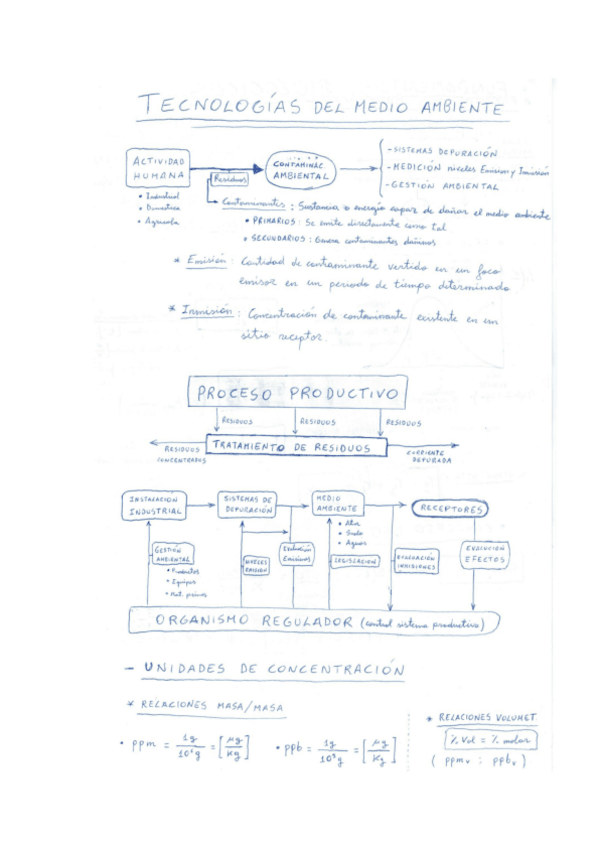 TECNOLOGÍAS DEL MEDIO AMBIENTE
ACTIVIDAD HUMANA
• Industrial
• Doméstica
• Agrícola
Residuos
CONTAMINAC. AMBIENTAL
- SISTEMAS DEPURACIÓN
- MEDICIÓN niveles Emisión y Inmisión
- GESTIÓN AMBIENTAL
Contaminantes : Sustancia o energía capaz de dañar el medio ambiente
• PRIMARIOS : Se emite directamente como tal
• SECUNDARIOS : Genera contaminantes dañinos
* Emisión : Cantidad de contaminante vertido en un foco
emisor en un periodo de tiempo determinado
* Inmisión : Concentración de contaminante existente en un
sitio receptor.
PROCESO PRODUCTIVO
RESIDUOS RESIDUOS RESIDUOS
TRATAMIENTO DE RESIDUOS
RESIDUOS
CONCENTRADOS
CORRIENTE
DEPURADA
INSTALACIÓN
INDUSTRIAL
SISTEMAS DE
DEPURACIÓN
MEDIO
AMBIENTE
• Atm
• Suelo
• Aguas
RECEPTORES
GESTIÓN
AMBIENTAL
• Productos
• Equipos
• Mat. primas
NIVELES
EMISIÓN
Evaluación
Emisiones
LEGISLACIÓN
EVALUACIÓN
INMISIONES
EVALUCIÓN
EFECTOS
ORGANISMO REGULADOR (control sistema productivo)
- UNIDADES DE CONCENTRACIÓN
* RELACIONES MASA/MASA
• ppm = 1g / 10⁶g = [µg / Kg]
• ppb = 1g / 10⁹g = [µg / Kg]
* RELACIONES VOLUMET.
% Vol = % molar
( ppmv ; ppbv )